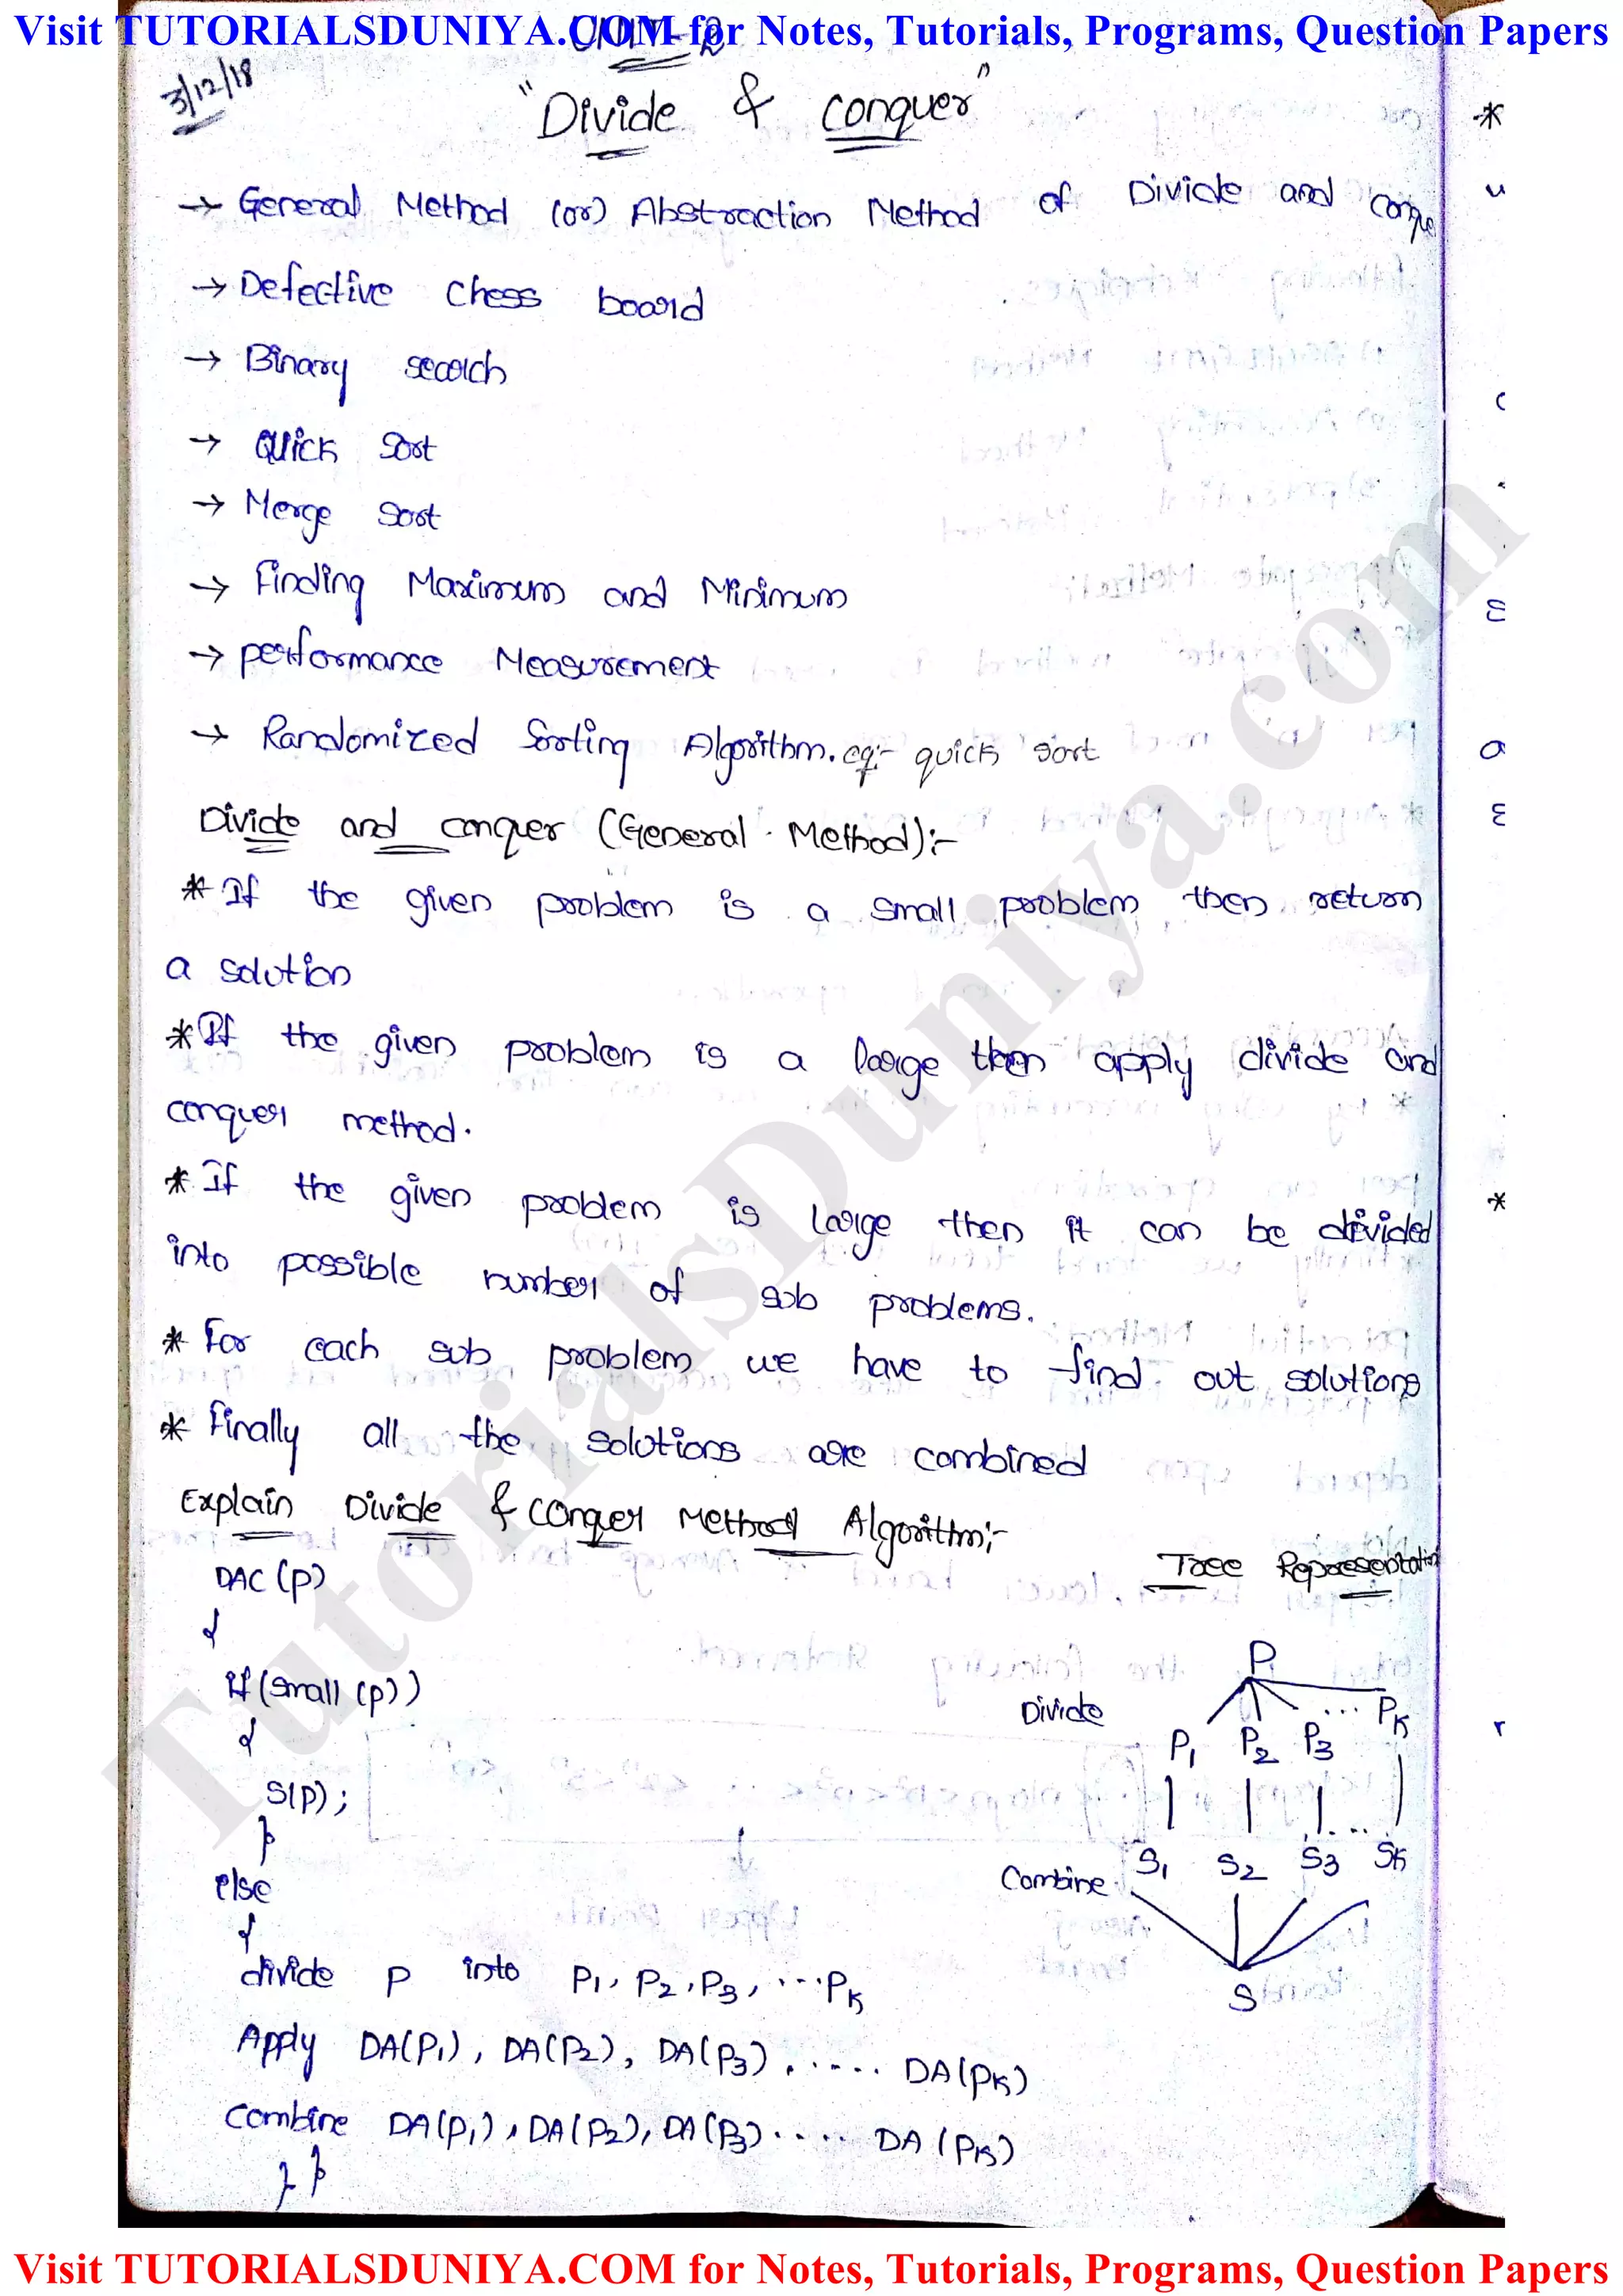 Visit TUTORIALSDUNIYA.COM for Notes, Tutorials, Programs, Question Papers
UNIT-2
3/12/18
"Divide & conquer"
→ General Method (or) Abstraction Method of Divide and conque
→ Defective chess board
→ Binary search
→ Quick sort
→ Merge sort
→ Finding Maximum and Minimum
→ performance Measurement
→ Randomized Sorting Algorithm. eg:- quick sort
Divide and conquer (General Method):-
* If the given problem is a small problem then return
a solution
* If the given problem is a large then apply divide and
conquer method.
* If the given problem is large then it can be divided
into possible number of sub problems.
* For each sub problem we have to find out solutions
* Finally all the solutions are combined
Explain Divide & conquer Method Algorithm:-
Tree Representation
DAC (P)
{
if (small (p))
{
S(P);
}
else
{
divide P into P1, P2, P3, ... PK
Apply DA(P1), DA(P2), DA(P3), ..... DA(PK)
Combine DA(P1), DA(P2), DA(P3) ..... DA (PK)
} }
P
Divide
P1 P2 P3 ... PK
S1 S2 S3 ... SK
Combine
S
TutorialsDuniya.com
Visit TUTORIALSDUNIYA.COM for Notes, Tutorials, Programs, Question Papers